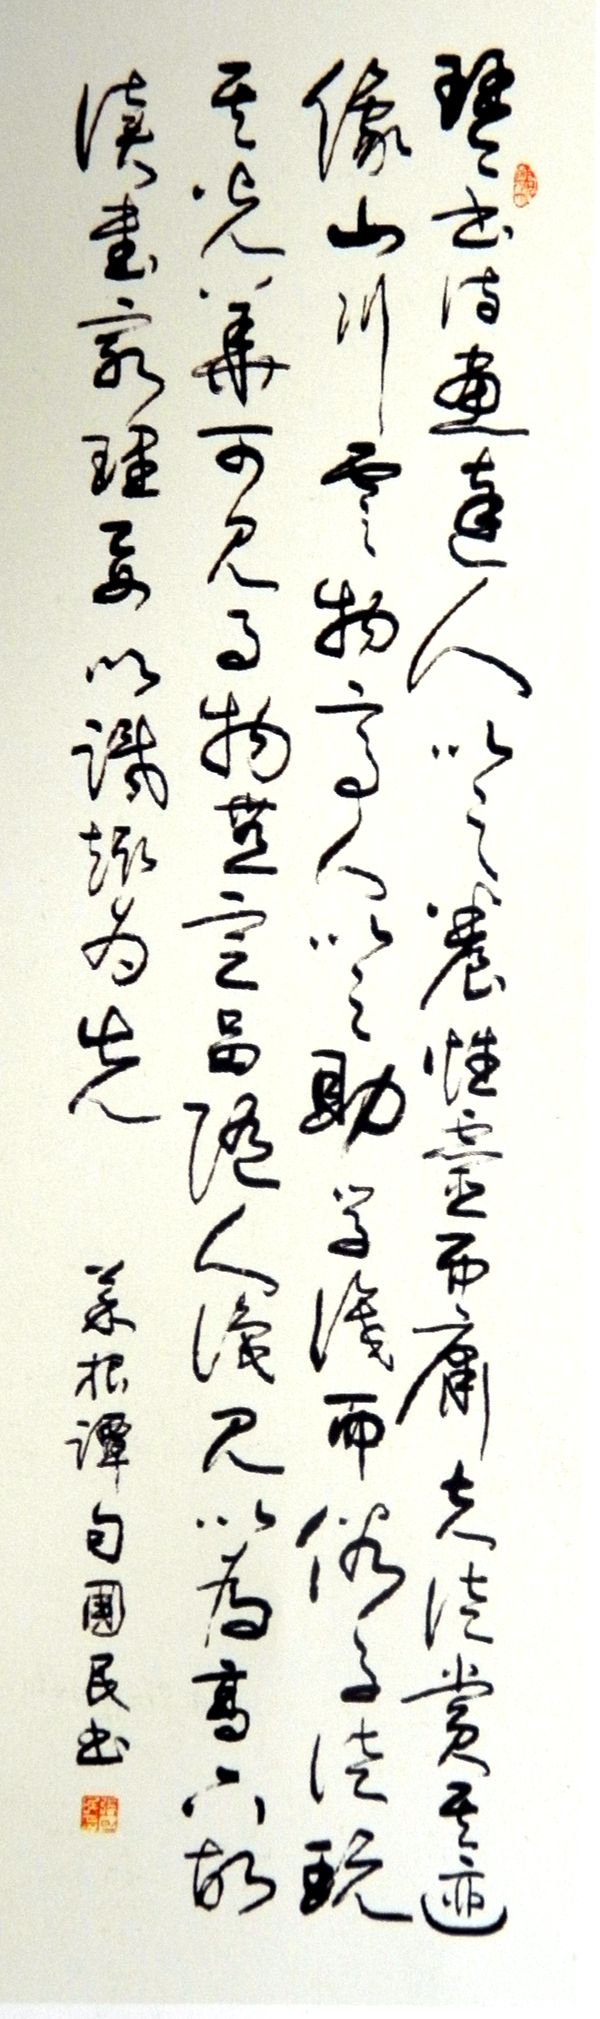 琴书诗画达人以之养性灵而庸夫徒赏其迹
像山川云物高人以之助学识而俗子徒玩
其光华可见事物无定品随人识见以为高下故
读书穷理要以识趣为先
菜根谭句国民书